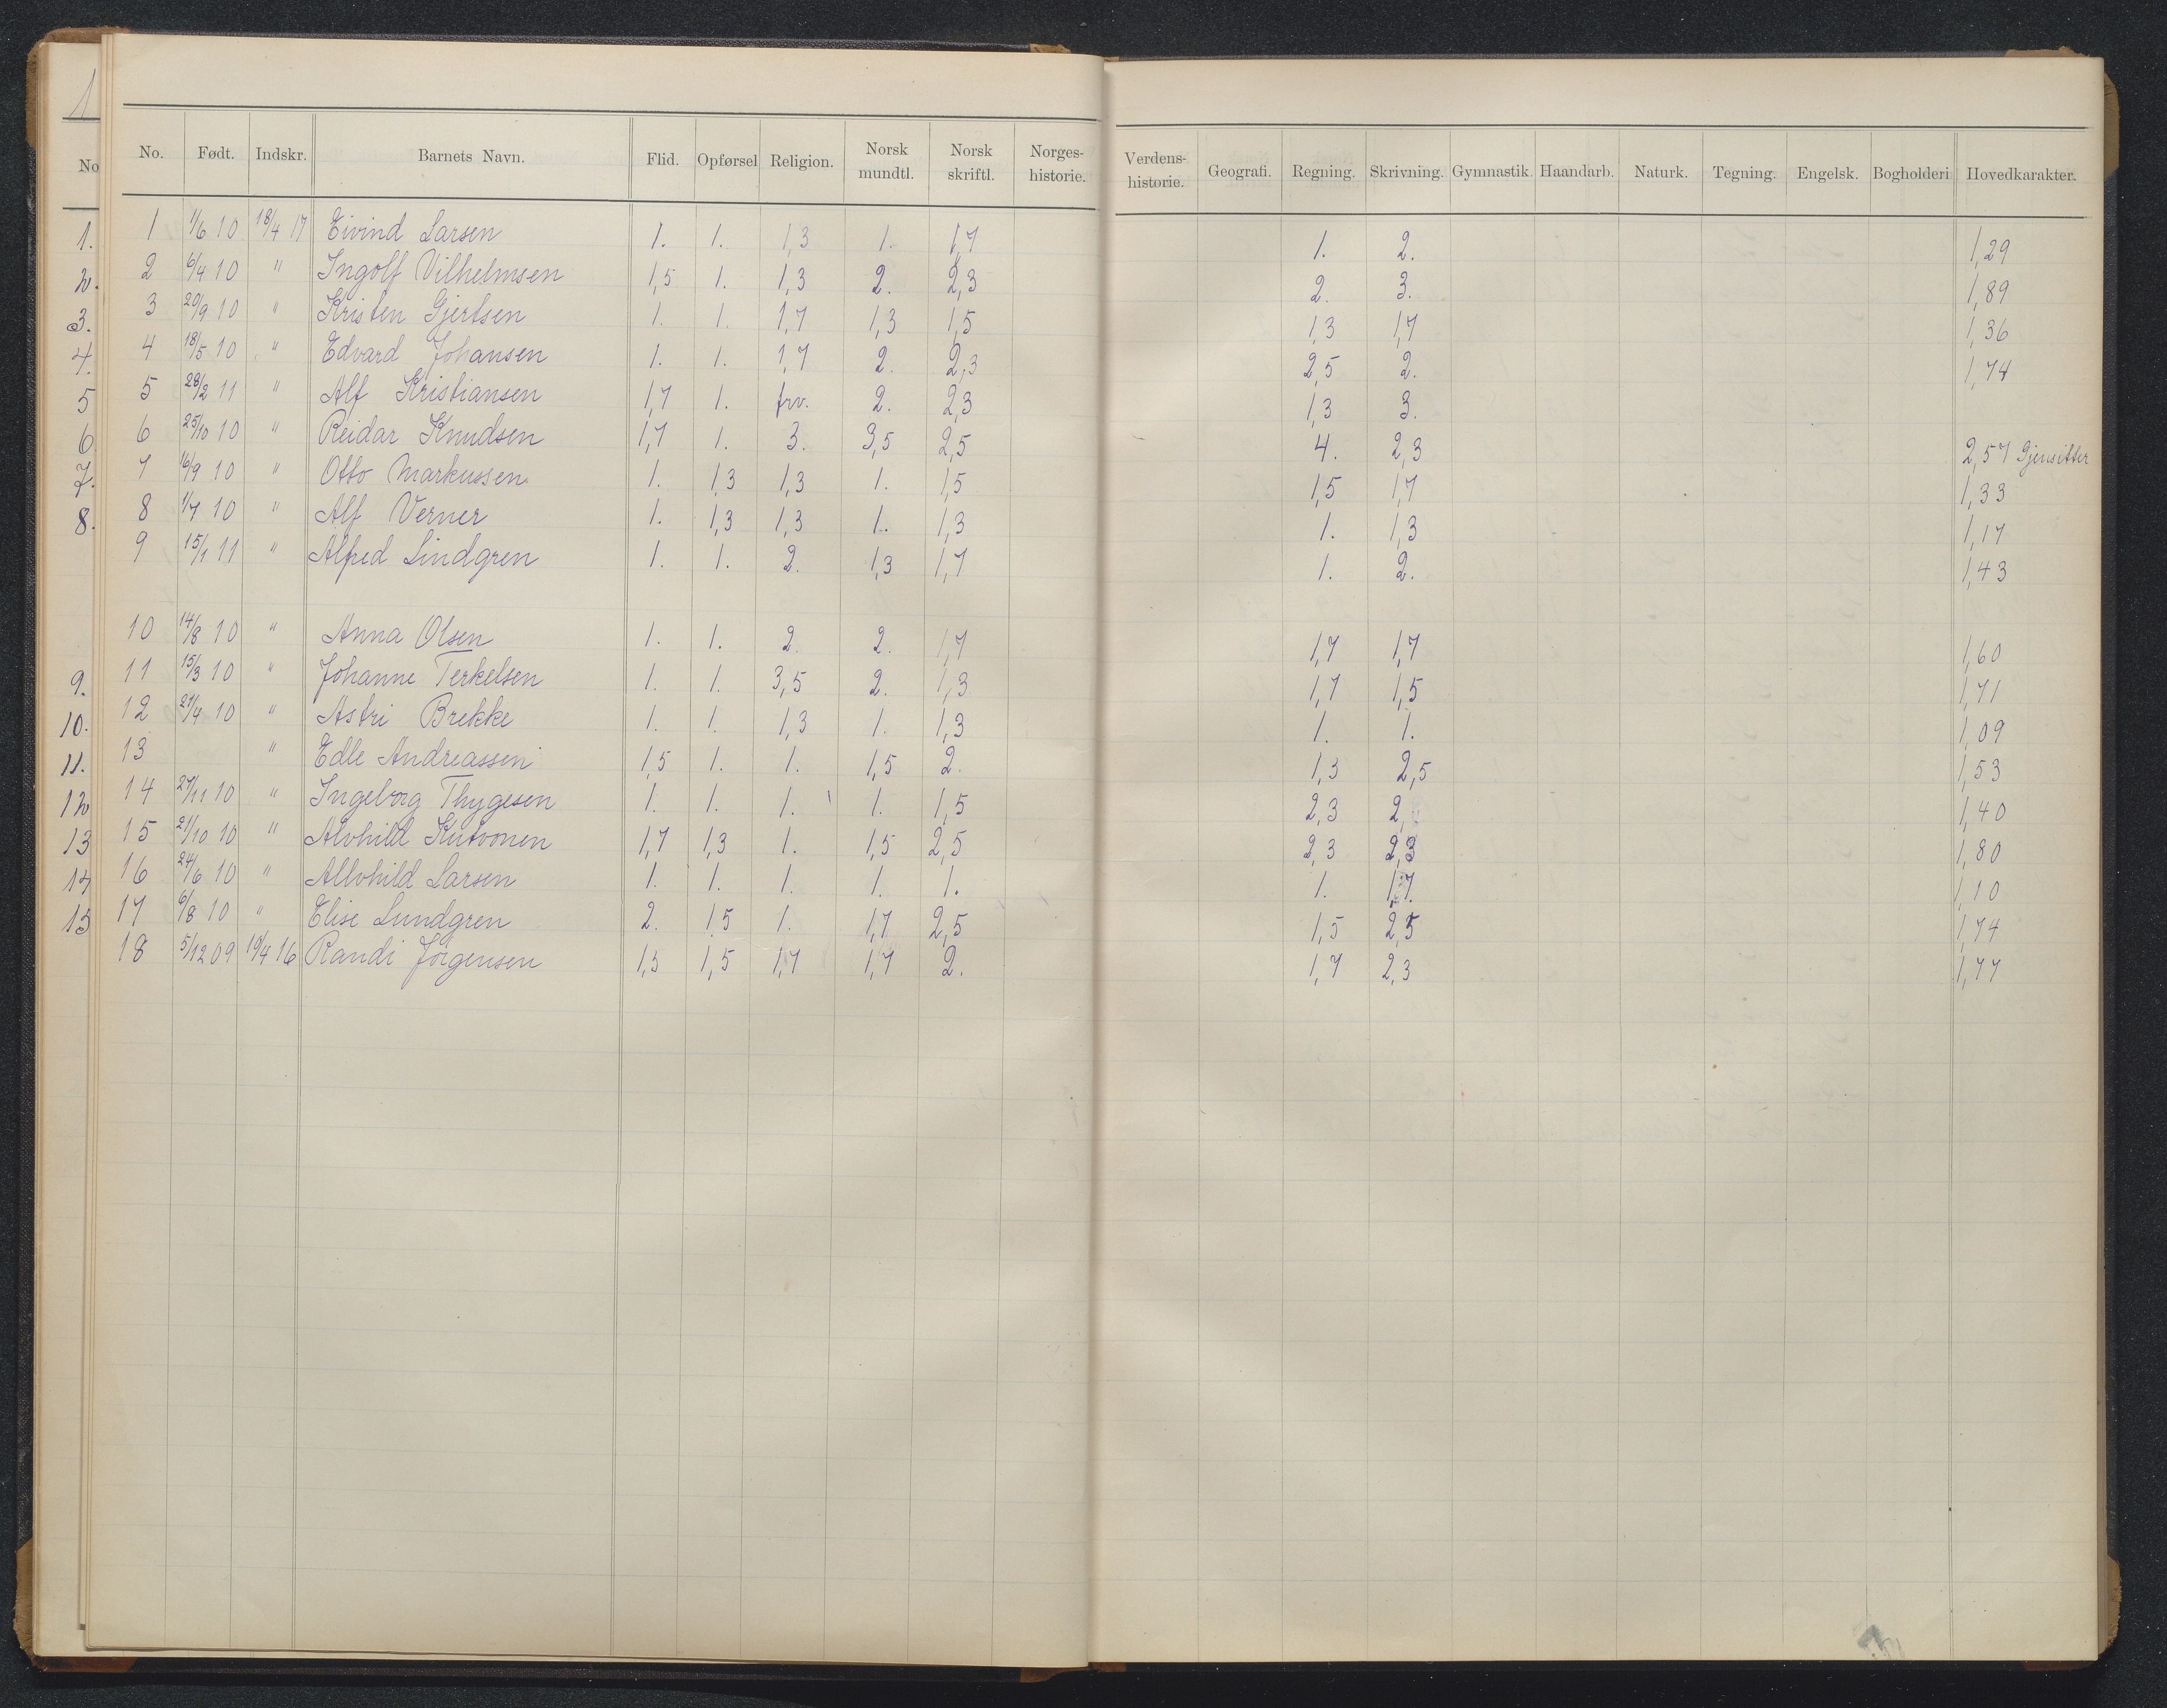 1
No
1.
2.
3.
4.
5
6
7.
8.
9.
10.
11.
12
13
14
15
No. Født. Indskr. Barnets Navn. Flid. Opførsel Religion. Norsk mundtl. Norsk skriftl. Norges-historie. Verdens-historie. Geografi. Regning. Skrivning. Gymnastik. Haandarb. Naturk. Tegning. Engelsk. Bogholderi Hovedkarakter.
1 1/6 10 18/4 17 Eivind Larsen 1. 1. 1,3 1. 1,7 1. 2. 1,29
2 6/4 10 " Ingolf Vilhelmsen 1,5 1. 1,3 2. 2,3 2. 3. 1,89
3 20/9 10 " Kristen Gjertsen 1. 1. 1,7 1,3 1,5 1,3 1,7 1,36
4 18/5 10 " Edvard Johansen 1. 1. 1,7 2. 2,3 2,5 2. 1,74
5 28/2 11 " Alf Kristiansen 1,7 1. frv. 2. 2,3 1,3 3.
6 25/10 10 " Reidar Knudsen 1,7 1. 3. 3,5 2,5 4. 2,3 2,57 Gjensitter
7 16/9 10 " Otto Markussen 1. 1,3 1,3 1. 1,5 1,5 1,7 1,33
8 1/7 10 " Alf Verner 1. 1,3 1,3 1. 1,3 1. 1,3 1,17
9 15/1 11 " Alfred Lindgren 1. 1. 2. 1,3 1,7 1. 2. 1,43
10 14/8 10 " Anna Olsen 1. 1. 2. 2. 1,7 1,7 1,7 1,60
11 15/3 10 " Johanne Terkelsen 1. 1. 3,5 2. 1,3 1,7 1,5 1,71
12 21/4 10 " Astri Brekke 1. 1. 1,3 1. 1,3 1. 1. 1,09
13 " Edle Andreassen 1,5 1. 1. 1,5 2. 1,3 2,5 1,53
14 27/11 10 " Ingeborg Thygesen 1. 1. 1. 1. 1,5 2,3 2, 1,40
15 21/10 10 " Alvhild Kutvonen 1,7 1,3 1. 1,5 2,5 2,3 2,3 1,80
16 24/6 10 " Allvhild Larsen 1. 1. 1. 1. 1. 1. 1,7. 1,10
17 6/8 10 " Elise Lundgren 2. 1,5 1. 1,7 2,5 1,5 2,5 1,74
18 5/12 09 10/4 16 Randi Jörgensen 1,5 1,5 1,7 1,7 2. 1,7 2,3 1,77